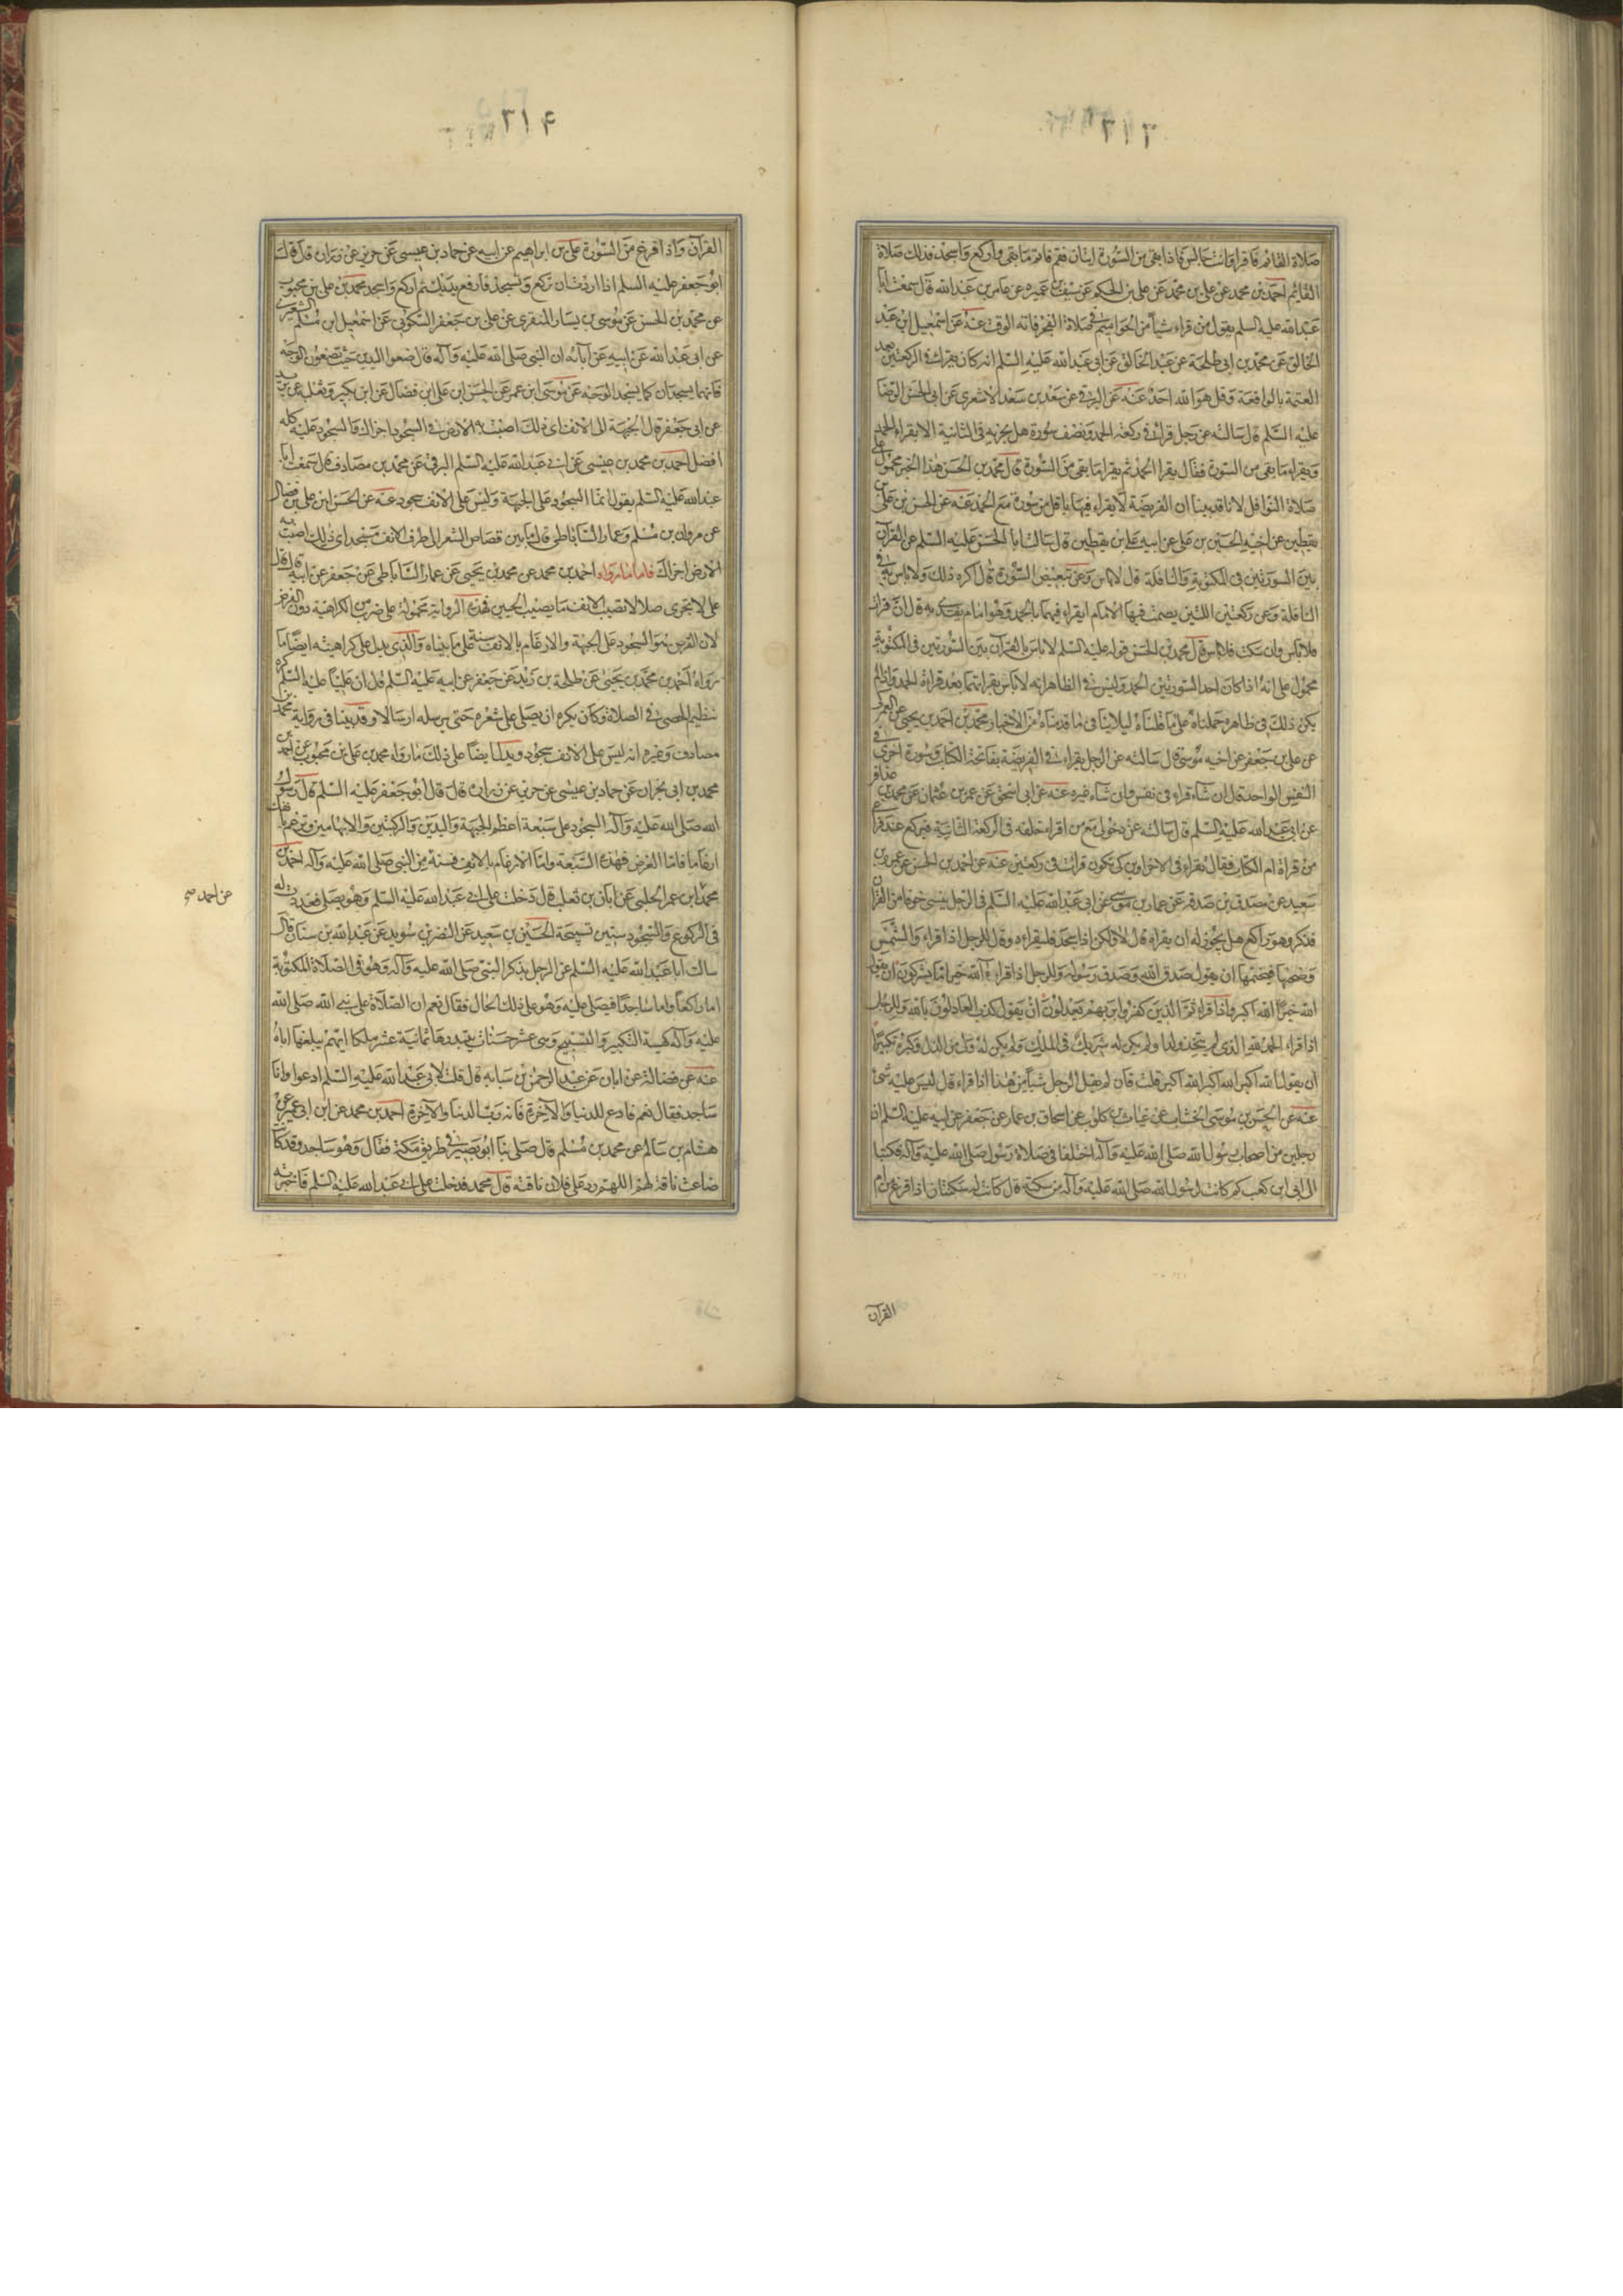 ٣١٣
صلاة القائم فاقرا وانت جالس فاذا بقى من السورة ايتان فقم فاتم ما بقى واركع واسجد فذلك صلاة
القائم احمد بن محمد عن على بن محمد عن على بن الحكم عن سيف بن عميره عن عامر بن عبد الله قال سمعت ابا
عبد الله عليه السلم يقول من قراء شيأ من الحواميم فى صلاة الفجر فاته الوقت عنه عن اسمعيل ابن عبد
الخالق عن محمد بن ابى طلحة عن عبد الخالق عن ابى عبد الله عليه السلم انه كان يقرا فى الركعتين بعد
العتمة بالواقعة وقل هو الله احد عنه عن البرقى عن سعد بن سعد الاشعرى عن ابى الحسن الرضا
عليه السلم قال سالته عن رجل قرا فى ركعة الحمد ونصف سورة هل يجزيه فى الثانية الا يقراء الحمد
ويقراء ما بقى من السورة فقال يقرا الحمد ثم يقرا ما بقى من السورة قال محمد بن الحسن هذا الخبر محمول على
صلاة النوافل لانا قد بينا ان الفريضة لا يقراء فيها باقل من سورة مع الحمد عنه عن الحسن بن على بن
يقطين عن اخيه الحسين بن على عن ابيه على بن يقطين قال سالت ابا الحسن عليه السلم عن القران
بين السورتين فى المكتوبة والنافلة قال لا باس وعن تبعيض السورة قال اكره ذلك ولا باس به فى
النافلة وعن ركعتين اللتين يصمت فيهما الامام ايقراء فيهما بالحمد وهو امام يقتدى به قال ان قرات
فلا باس وان سكت فلا باس قال محمد بن الحسن قوله عليه السلم لا باس بالقران بين السورتين فى المكتوبة
محمول على انه اذا كان احد السورتين الحمد وليس فى الظاهر انه لا باس بقرانهما بعد قراءة الحمد واذا لم
يكن ذلك فى ظاهره حملناه على ما قلناه ليلا ينافى ما قدمناه من الاخبار محمد بن احمد بن يحيى عن العمركى
عن على بن جعفر عن اخيه موسى قال سالته عن الرجل يقراء فى الفريضة بفاتحة الكتاب وسورة اخرى فى
النفس الواحد قال ان شاء قراء فى نفس وان شاء غيره عنه عن ابى اسحق عن عمر بن عثمان عن محمد بن عذافر
عن ابى عبد الله عليه السلم قال سالته عن دخولى مع من اقراء خلفه فى الركعة الثانية فيركع عند فراغى
من قراة ام الكتاب فقال تقراء فى الاخراوين كى تكون قرات فى ركعتين عنه عن احمد بن الحسن عن عمرو بن
سعيد عن مصدق بن صدقه عن عمار بن موسى عن ابى عبد الله عليه السلم فى الرجل ينسى حرفا من القران
فذكر وهو راكع هل يجوز له ان يقراء قال لا ولكن اذا سجد فليقراءه وقال الرجل اذا قراء والشمس
وضحيها فيختمها ان يقول صدق الله وصدق رسوله والرجل اذا قراء آلله خير اما يشركون ان يقول
الله خير الله اكبر واذا قراء ثم الذين كفروا بربهم يعدلون ان يقول كذب العادلون بالله والرجل
اذا قراء الحمد لله الذى لم يتخذ ولدا ولم يكن له شريك فى الملك ولم يكن له ولى من الذل وكبره تكبيرا
ان يقول الله اكبر الله اكبر الله اكبر قلت فان لم يقل الرجل شيأ من هذا اذا قراء قال ليس عليه شئ
عنه عن الحسن بن موسى الخشاب عن غياث بن كلوب عن اسحاق بن عمار عن جعفر عن ابيه عليه السلم ان
رجلين من اصحاب رسول الله صلى الله عليه وآله اختلفا فى صلاة رسول صلى الله عليه وآله فكتبا
الى ابى ابن كعب كم كانت لرسول الله صلى الله عليه وآله من سكتة قال كانت له سكتتان اذا فرغ من ام
القرآن
٣١۴
القرآن واذا فرغ من السورة على بن ابراهيم عن ابيه عن حماد بن عيسى عن حريز عن زراة قال قال
ابو جعفر عليه السلم اذا اردت ان تركع وتسجد فارفع يديك ثم اركع واسجد محمد بن على بن محبوب
عن محمد بن الحسن عن موسى بن يسار المنقرى عن على بن جعفر السكونى عن اسمعيل ابن مسلم الشعيرى
عن ابى عبد الله عن ابيه عن آبائه ان النبى صلى الله عليه وآله قال ضعوا اليدين حيث تضعون الوجه
فانهما يسجدان كما يسجد الوجه عن موسى ابن عمر عن الحسن ابن على ابن فضال عن ابن بكير وثعلبه عن بريد
عن ابى جعفر قال الجبهة الى الانف اى ذلك اصبت به الارض فى السجود اجزاك والسجود عليه كله
افضل احمد بن محمد بن عيسى عن ابى عبد الله عليه السلم البرقى عن محمد بن مصادف قال سمعت ابا
عبد الله عليه السلم يقول انما السجود على الجبهة وليس على الانف سجود عنه عن الحسن ابن على بن فضال
عن مروان بن مسلم وعمار الساباطى قال ما بين قصاص الشعر الى طرف الانف مسجد اى ذلك اصبت به
الارض اجزاك فاما ما رواه احمد بن محمد عن محمد بن يحيى عن عمار الساباطى عن جعفر عن ابيه قال قال
على لا تجزى صلا لا تصيب الانف ما يصيب الجبين فهذه الرواية محمولة على ضرب من الكراهية دون الفرض
لان الفرض هو السجود على الجبهة والارغام بالانف سنة على ما بيناه والذى يدل على كراهيته ايضا ما
رواه احمد بن محمد بن يحيى عن طلحة بن زيد عن جعفر عن ابيه عليه السلم قال ان عليا عليه السلم كره
تنظيم الحصى فى الصلاة وكان يكره ان يصلى على شعره حتى يرسله ارسالا وقد بينا فى رواية محمد بن
مصادف وغيره انه ليس على الانف سجود ويدل ايضا على ذلك ما رواه محمد بن على بن محبوب عن احمد بن
محمد بن ابى نجران عن حماد بن عيسى عن حريز عن زرارة قال قال ابو جعفر عليه السلم قال رسول
الله صلى الله عليه وآله السجود على سبعة اعظم الجبهة واليدين والركبتين والابهامين وترغم بانفك
ارغاما فاما الفرض فهذه السبعة واما الارغام بالانف فسنة من النبى صلى الله عليه وآله احمد بن
محمد ابن عمر الحلبى عن ابان بن تغلب قال دخلت على ابى عبد الله عليه السلم وهو يصلى فعددت له
عن احمد صح
فى الركوع والسجود ستين تسبيحة الحسين بن سعيد عن النضر بن سويد عن عبد الله بن سنان قال
سالت ابا عبد الله عليه السلم عن الرجل يذكر النبى صلى الله عليه وآله وهو فى الصلاة المكتوبة
اما راكعا واما ساجدا فيصلى عليه وهو على ذلك الحال فقال نعم ان الصلاة على نبى الله صلى الله
عليه وآله كهيئة التكبير والتسبيح وهى عشر حسنات يبتدرها ثمانية عشر ملكا ايهم يبلغها اياه
عنه عن فضالة عن ابان عن عبد الرحمن بن سيابه قال قلت لابى عبد الله عليه السلم ادعوا وانا
ساجد فقال نعم فادع للدنيا والآخرة فانه رب الدنيا والآخرة احمد بن محمد عن ابن ابى عمير عن
هشام بن سالم عن محمد بن مسلم قال صلى بنا ابو بصير فى طريق مكة فقال وهو ساجد وقد كانت
ضاعت ناقة لهم اللهم رد على فلان ناقته قال محمد فدخلت على ابى عبد الله عليه السلم فاخبرته